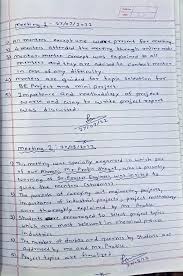 Meeting 1 - 27/07/2022
1) All mentors except one were present for meeting
2) 4 mentors attended the meeting through online mode
3) mentor mentee concept was explained to all
mentees and they are advised to contact mentor
in case of any difficulty.
4) mentees are guided for topic selection for
BE Project and mini project
Importance and methodology of project
work and how to write project report
was discussed.
27/07/22
Meeting 2
1) This meeting was specially organised in which one
of our
working at was invited to
guide the mentees (students)
2) The purpose of carrying out engineering projects,
importance of industrial projects, project methodology
were thoroughly explained by
3) Students were encouraged to select project topics
which are most relevant in chemical process
industries.
4) The number of doubts and queries by students are
addressed by me and
5) Project topics are finalised